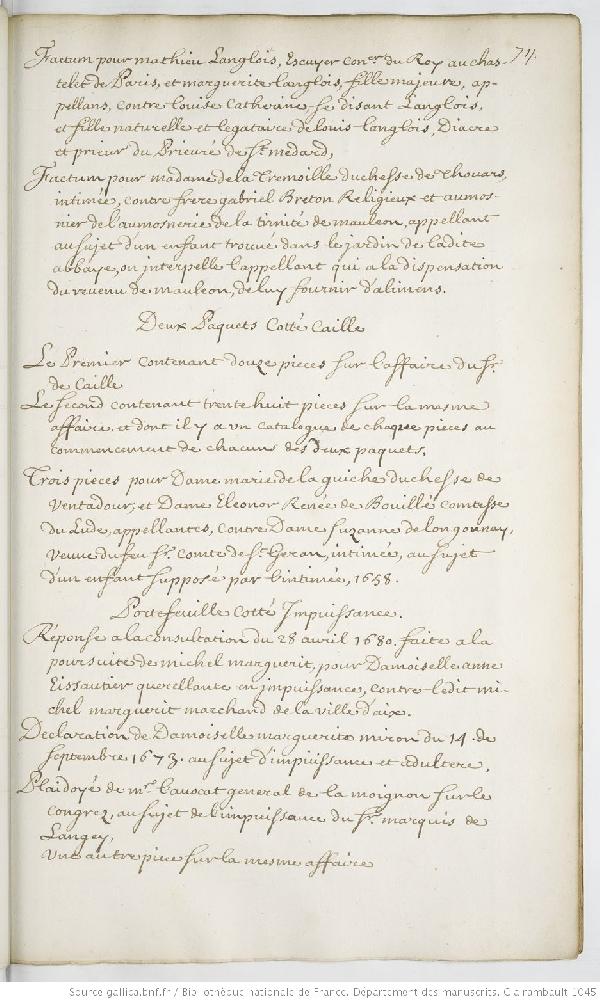 74.
Factum pour mathieu Langlois, Escuyer Con.er du Roy au chas-
telet de Paris, et marguerite langlois, fille majeure, ap-
pellans, contre louise Catherine se disant Langlois,
et fille naturelle et legataire de louis langlois, Diacre
et prieur du Prieuré de St. medard,
Factum pour madame de la Tremoille duchesse de Thouars,
intimée, contre frere gabriel Breton Religieux et aumos-
nier de l'aumosnerie de la trinité de mauleon, appellant
au sujet d'un enfant trouvé dans le jardin de ladite
abbaye, on interpelle l'appellant qui a la dispensation
du revenu de mauleon, de luy fournir d'alimens.
Deux Paquets Cotté Caille
Le Premier contenant douze pieces sur l'affaire du Sr.
de Caille
Le second contenant trente huit pieces sur la mesme
affaire, et dont il y a un catalogue de chaque pieces au
commencement de chacun des deux paquets.
Trois pieces pour Dame marie de la guiche duchesse de
Ventadour, et Dame Eleonor Renée de Bouillé comtesse
du Lude, appellantes, contre Dame Suzanne de longaunay,
veuve du feu Sr. Comte de St. Geran, intimée, au sujet
d'un enfant supposé par l'intimée, 1658.
Portefeuille Cotté Impuissance.
Réponse a la consultation du 28 avril 1680. faite a la
poursuite de michel marguerit, pour Damoiselle anne
Eissautier querellante en impuissance, contre ledit mi-
chel marguerit marchand de la ville d'aix.
Declaration de Damoiselle marguerite miron du 14. de
septembre 1673. au sujet d'impuissance et adultere,
Plaidoyé de mr. l'avocat general de la moignon sur le
congrez, au sujet de l'impuissance du Sr. marquis de
Langey,
Une autre piece sur la mesme affaire
Source gallica.bnf.fr / Bibliothèque nationale de France. Département des manuscrits. Clairambault 1045